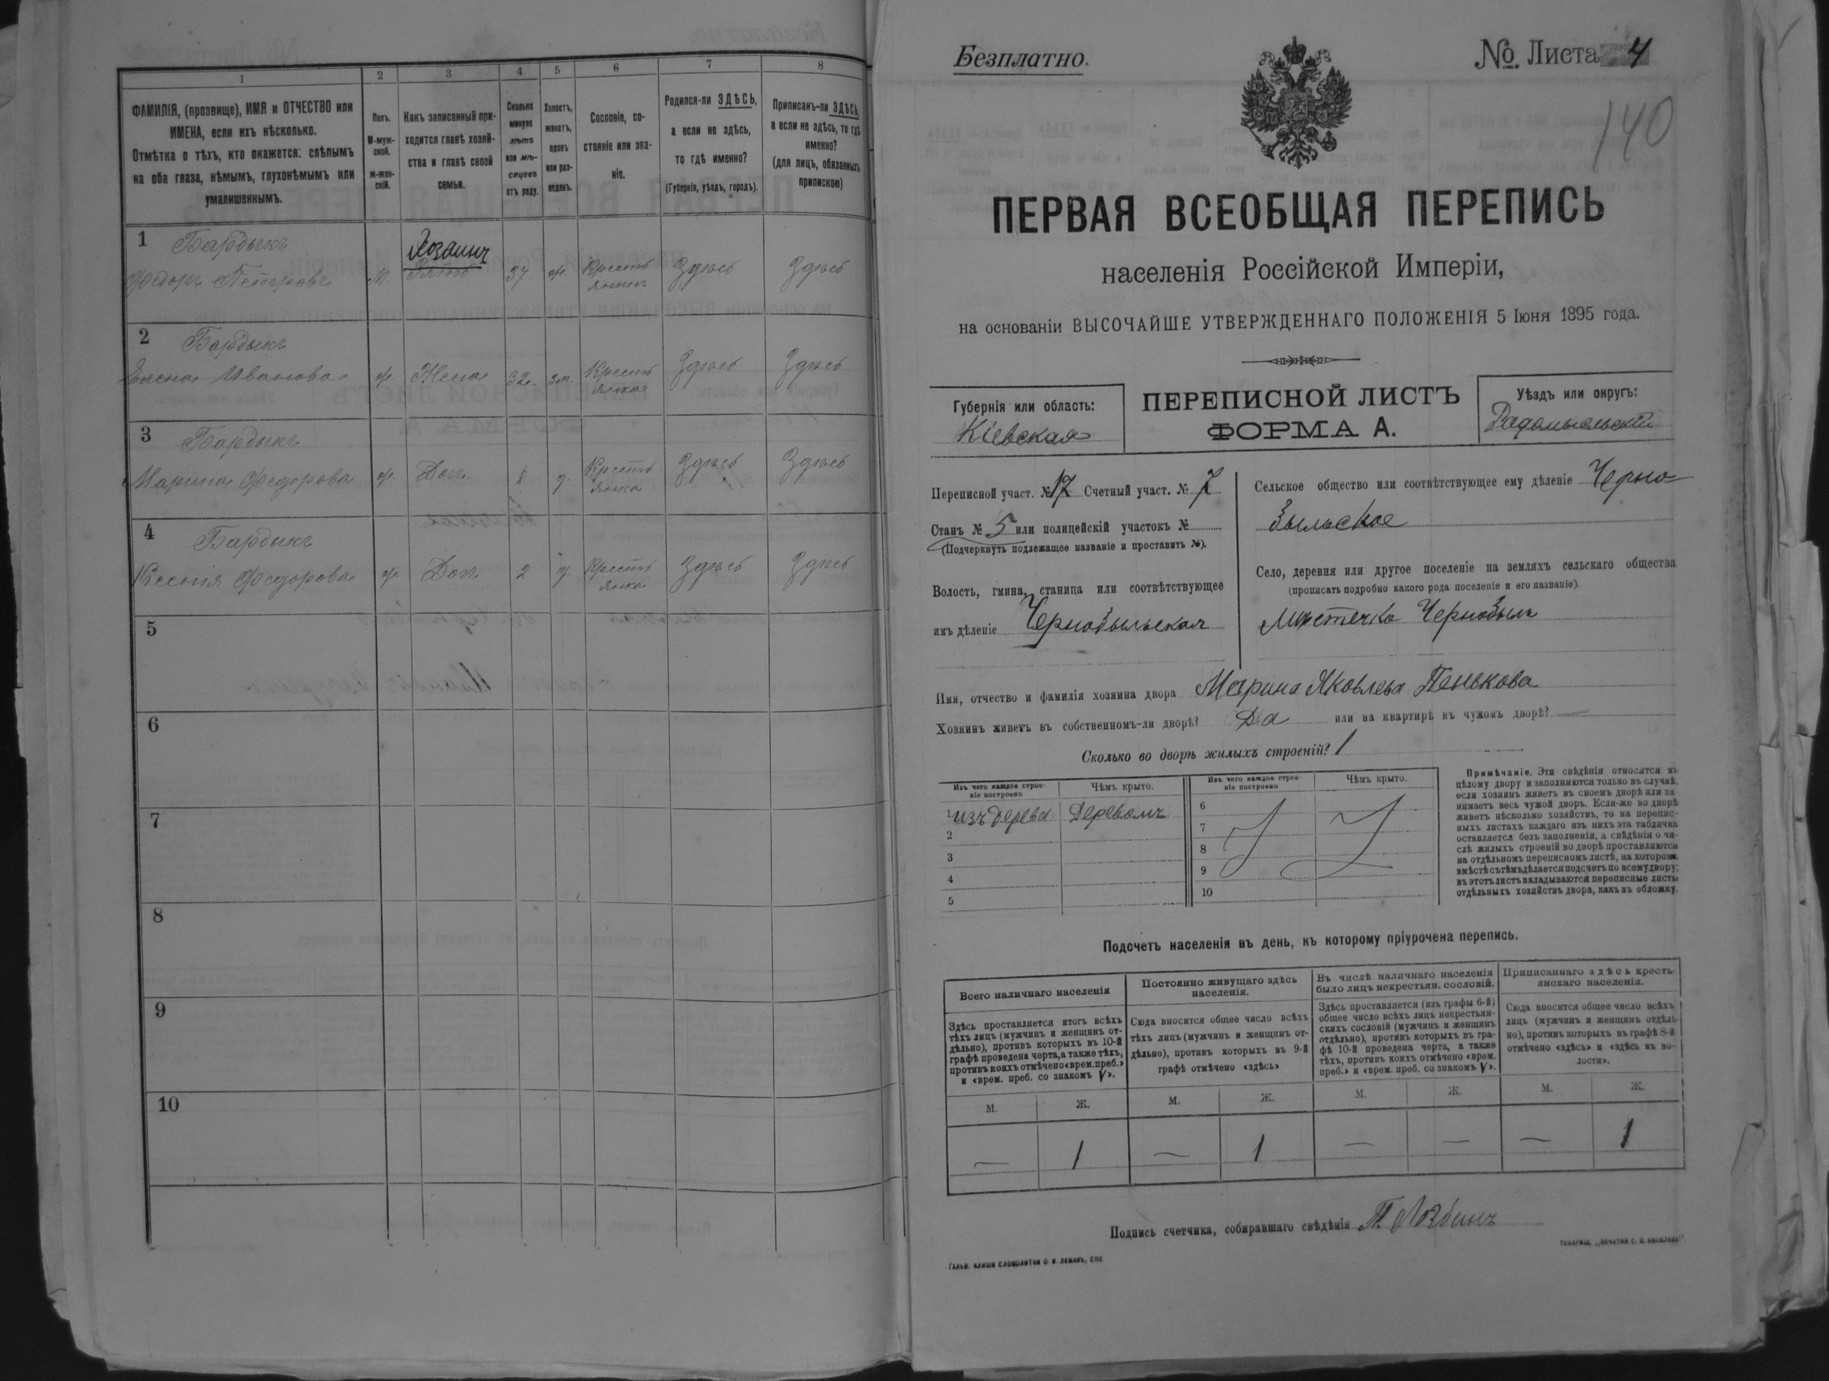 1 2 3 4 5 6 7 8
ФАМИЛІЯ, (прозвище), ИМЯ и ОТЧЕСТВО или
ИМЕНА, если ихъ нѣсколько.
Отмѣтка о тѣхъ, кто окажется: слѣпымъ
на оба глаза, нѣмымъ, глухонѣмымъ или
умалишеннымъ.
Полъ.
М-муж-
ской.
ж-жен-
скій.
Какъ записанный при-
ходится главѣ хозяй-
ства и главѣ своей
семьи.
Сколько
минуло
лѣтъ
или мѣ-
сяцевъ
отъ роду.
Холостъ,
женатъ,
вдовъ
или раз-
веденъ.
Сословіе, со-
стояніе или зва-
ніе.
Родился-ли ЗДѢСЬ,
а если не здѣсь,
то гдѣ именно?
(Губернія, уѣздъ, городъ).
Приписанъ-ли ЗДѢСЬ,
а если не здѣсь, то гдѣ
именно?
(для лицъ, обязанныхъ
припискою)
1 Бардыкъ Хозяинъ
Федоръ Петровъ М. 37 ж. Кресть
янинъ Здѣсь Здѣсь
2 Бардыкъ
Елена Иванова ж. Жена 32 зм. Кресть
янка Здѣсь Здѣсь
3 Бардыкъ
Марина Федорова ж. Доч. 8 д. Кресть
янка Здѣсь Здѣсь
4 Бардыкъ
Ксенія Федорова ж. Доч. 2 д. Кресть
янка Здѣсь Здѣсь
5
6
7
8
9
10
Безплатно.
№ Листа 4
140
ПЕРВАЯ ВСЕОБЩАЯ ПЕРЕПИСЬ
населенія Россійской Имперіи,
на основаніи ВЫСОЧАЙШЕ УТВЕРЖДЕННАГО ПОЛОЖЕНІЯ 5 Іюня 1895 года.
Губернія или область:
Кіевская
ПЕРЕПИСНОЙ ЛИСТЪ
ФОРМА А.
Уѣздъ или округъ:
Радомысльскій
Переписной участ. № 17 Счетный участ. № 7
Станъ № 5 или полицейскій участокъ №
(Подчеркнуть подлежащее названіе и проставить №).
Волость, гмина, станица или соотвѣтствующее
имъ дѣленіе Чернобыльская
Сельское общество или соотвѣтствующее ему дѣленіе Черно
быльское
Село, деревня или другое поселеніе на земляхъ сельскаго общества
(прописать подробно какого рода поселеніе и его названіе)
Мѣстечко Чернобыль
Имя, отчество и фамилія хозяина двора Марина Яковлева Пенькова
Хозяинъ живетъ въ собственномъ-ли дворѣ? Да или на квартирѣ въ чужомъ дворѣ? —
Сколько во дворѣ жилыхъ строеній? 1
Изъ чего каждое строе-
ніе построено
Чѣмъ крыто.
Изъ чего каждое строе-
ніе построено
Чѣмъ крыто.
1 изъ дерева Деревомъ 6
2 7
3 8
4 9
5 10
Примѣчаніе. Эти свѣдѣнія относятся къ
цѣлому двору и заполняются только въ случаѣ,
если хозяинъ живетъ въ своемъ дворѣ или за-
нимаетъ весь чужой дворъ. Если-же во дворѣ
живетъ нѣсколько хозяйствъ, то на перепис-
ныхъ листахъ каждаго изъ нихъ эта табличка
оставляется безъ заполненія, а свѣдѣнія о чи-
слѣ жилыхъ строеній во дворѣ проставляются
на отдѣльномъ переписномъ листѣ, на которомъ
вмѣстѣ съ тѣмъ дѣлается подсчетъ по всему двору;
въ этотъ листъ вкладываются переписные листы
отдѣльныхъ хозяйствъ двора, какъ въ обложку.
Подсчетъ населенія въ день, къ которому пріурочена перепись.
Всего наличнаго населенія
Здѣсь проставляется итогъ всѣхъ
тѣхъ лицъ (мужчинъ и женщинъ от-
дѣльно), противъ которыхъ въ 10-й
графѣ проведена черта, а также тѣхъ,
противъ коихъ отмѣчено «врем. преб.»
и «врем. преб. со знакомъ V».
Постоянно живущаго здѣсь
населенія.
Сюда вносится общее число всѣхъ
тѣхъ лицъ (мужчинъ и женщинъ от-
дѣльно), противъ которыхъ въ 9-й
графѣ отмѣчено «здѣсь»
Въ числѣ наличнаго населенія
было лицъ некрестьян. сословій.
Здѣсь проставляется (изъ графы 6-й)
общее число всѣхъ лицъ некрестьян-
скихъ сословій (мужчинъ и женщинъ
отдѣльно), противъ которыхъ въ гра-
фѣ 10-й проведена черта, а также
тѣхъ, противъ коихъ отмѣчено «врем.
преб.» и «врем. преб. со знакомъ V».
Приписаннаго здѣсь кресть-
янскаго населенія.
Сюда вносится общее число всѣхъ
лицъ (мужчинъ и женщинъ отдѣль-
но), противъ которыхъ въ графѣ 8-й
отмѣчено «здѣсь» и «здѣсь въ во-
лости».
М. Ж. М. Ж. М. Ж. М. Ж.
— 1 — 1 — — — 1
Подпись счетчика, собиравшаго свѣдѣнія